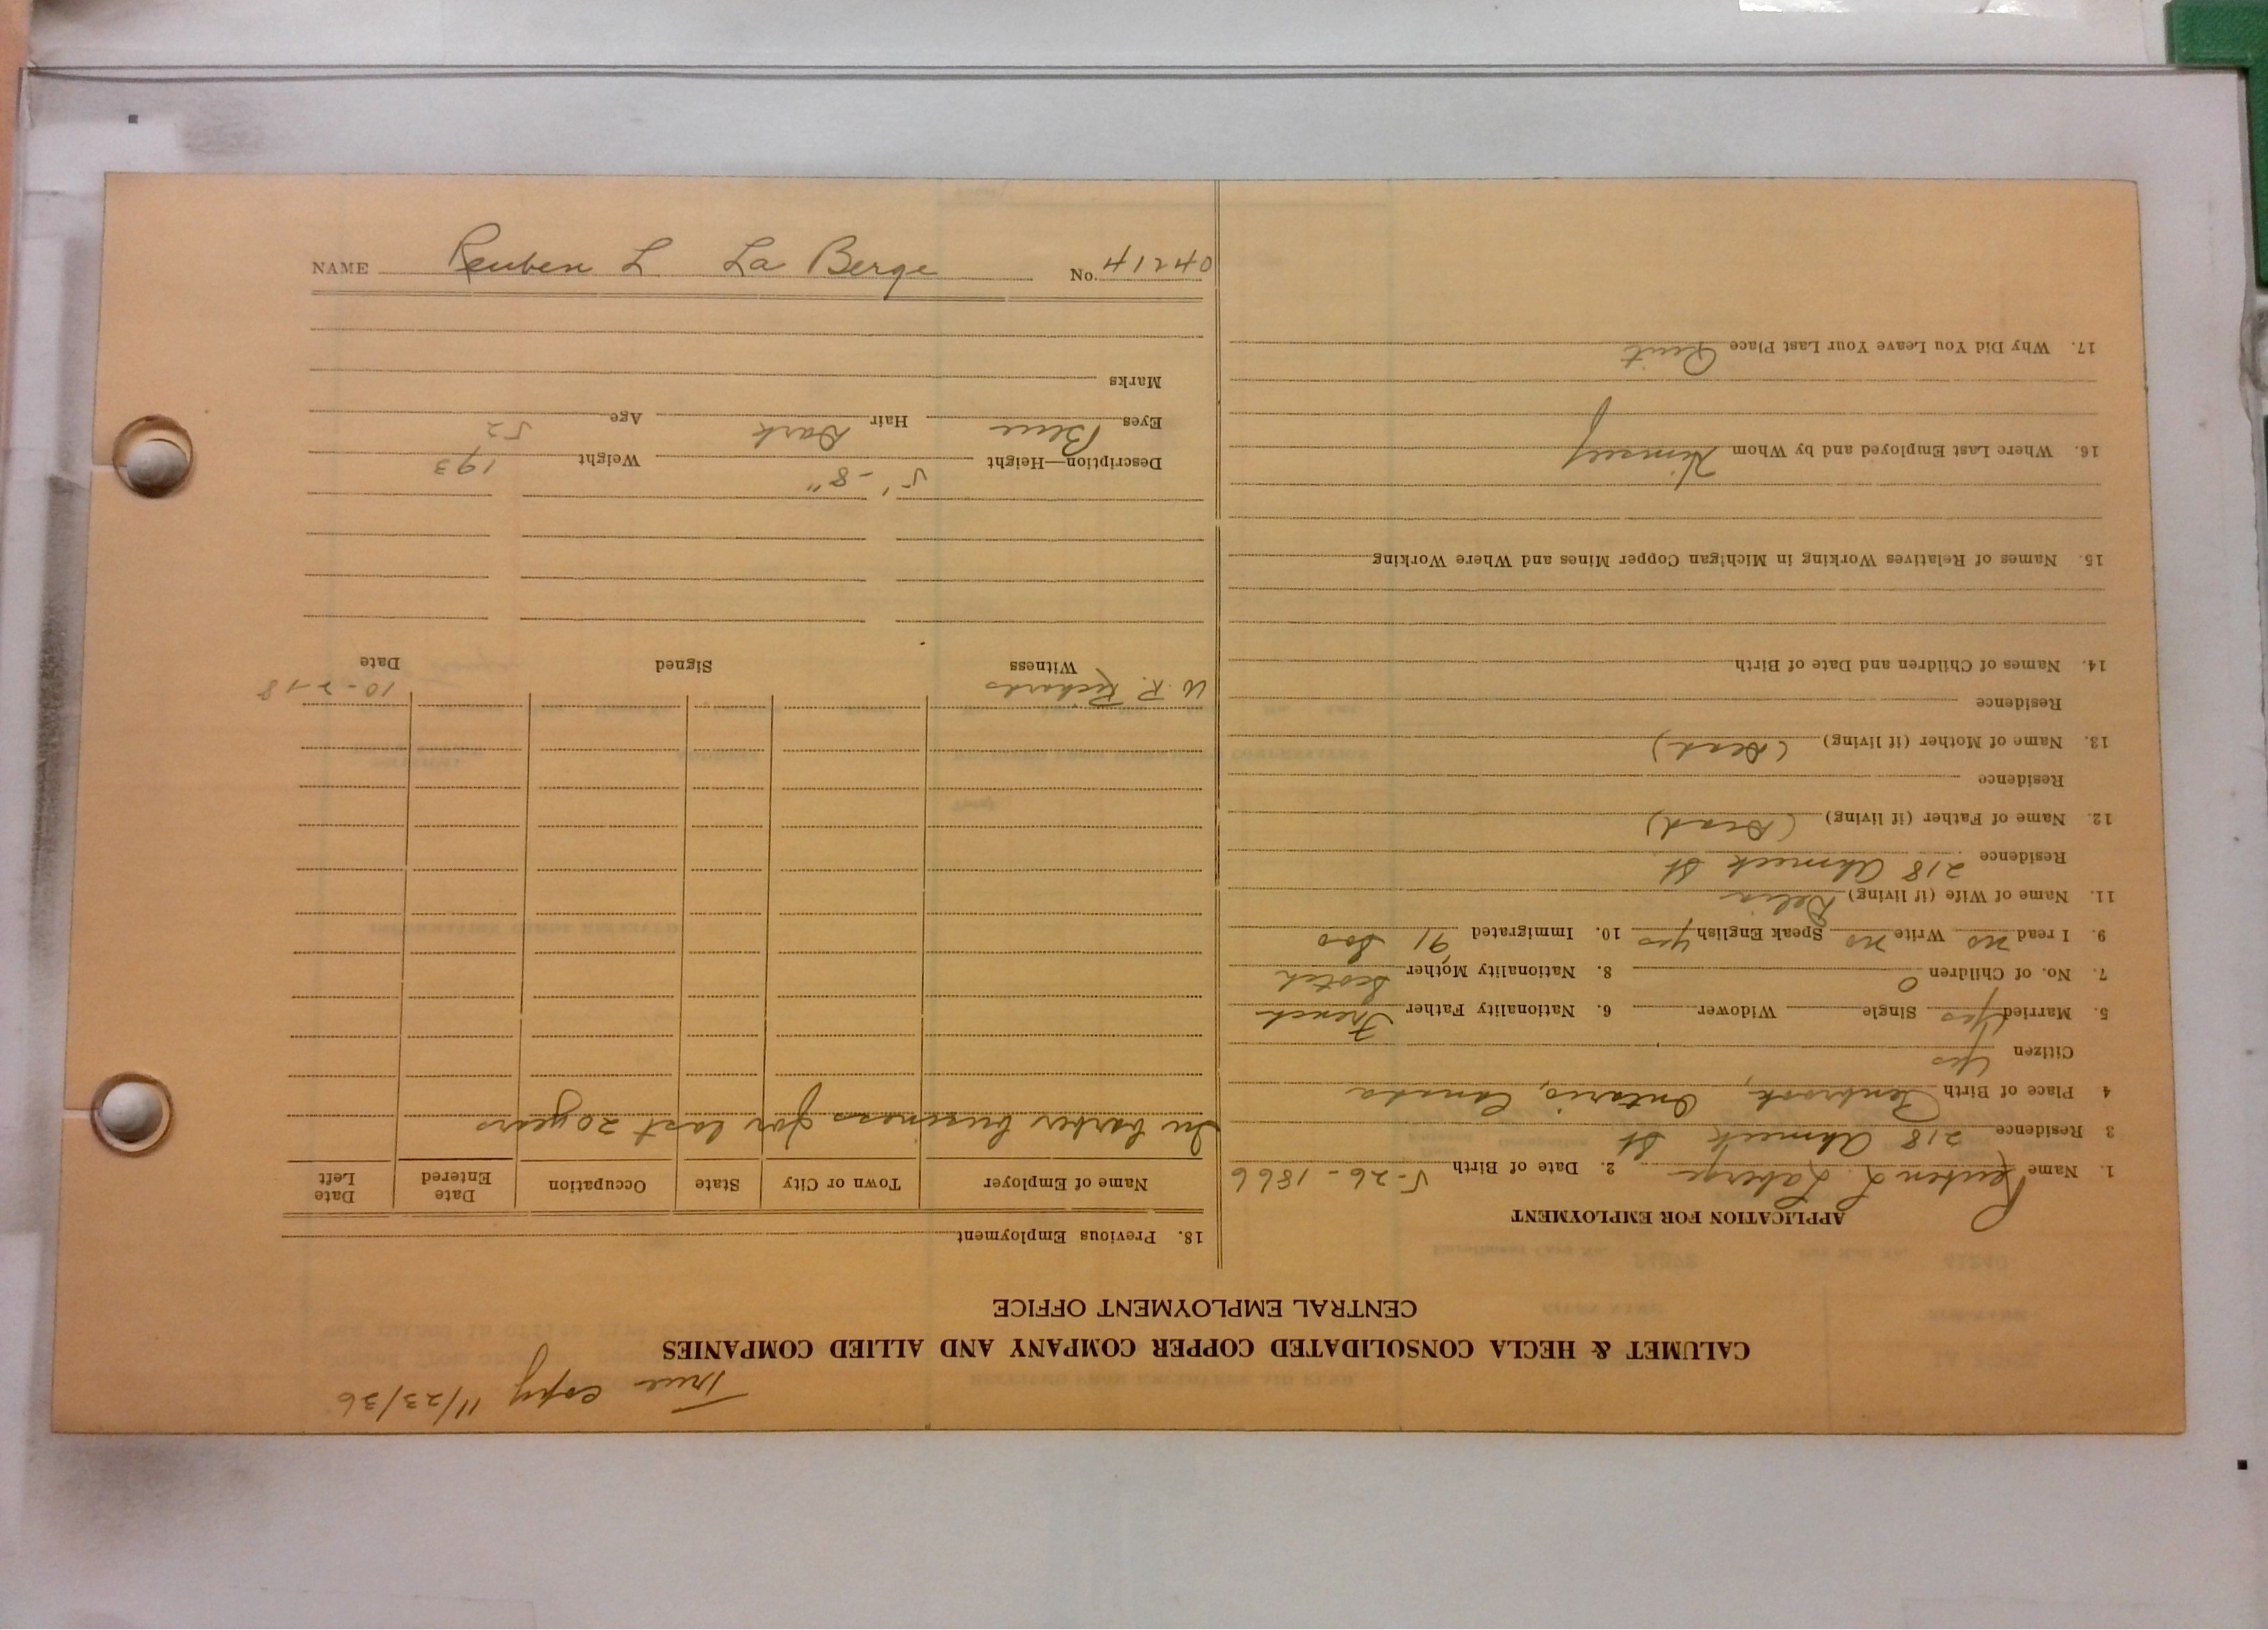 True copy 11/23/36
CALUMET & HECLA CONSOLIDATED COPPER COMPANY AND ALLIED COMPANIES
CENTRAL EMPLOYMENT OFFICE
APPLICATION FOR EMPLOYMENT
1. Name Reuben L. Laberge 2. Date of Birth 5-26-1866
3 Residence 218 Ahmeek St
4 Place of Birth Penbrook, Ontario, Canada
Citizen Yes
5. Married Yes Single Widower 6. Nationality Father French
7. No. of Children 0 8. Nationality Mother Scotch
9. I read no Write no Speak English yes 10. Immigrated 91 Soo
11. Name of Wife (if living) Delia
Residence 218 Ahmeek St
12. Name of Father (if living) (Dead)
Residence
13. Name of Mother (if living) (Dead)
Residence
14. Names of Children and Date of Birth
15. Names of Relatives Working in Michigan Copper Mines and Where Working
16. Where Last Employed and by Whom Himself
17. Why Did You Leave Your Last Place Quit
18. Previous Employment
Name of Employer Town or City State Occupation Date Entered Date Left
In barber business for last 20 years
W. R. Richards 10-2-18
Witness Signed Date
Description—Height 5'-8" Weight 193
Eyes Blue Hair Dark Age 52
Marks
NAME Reuben L La Berge No. 41240